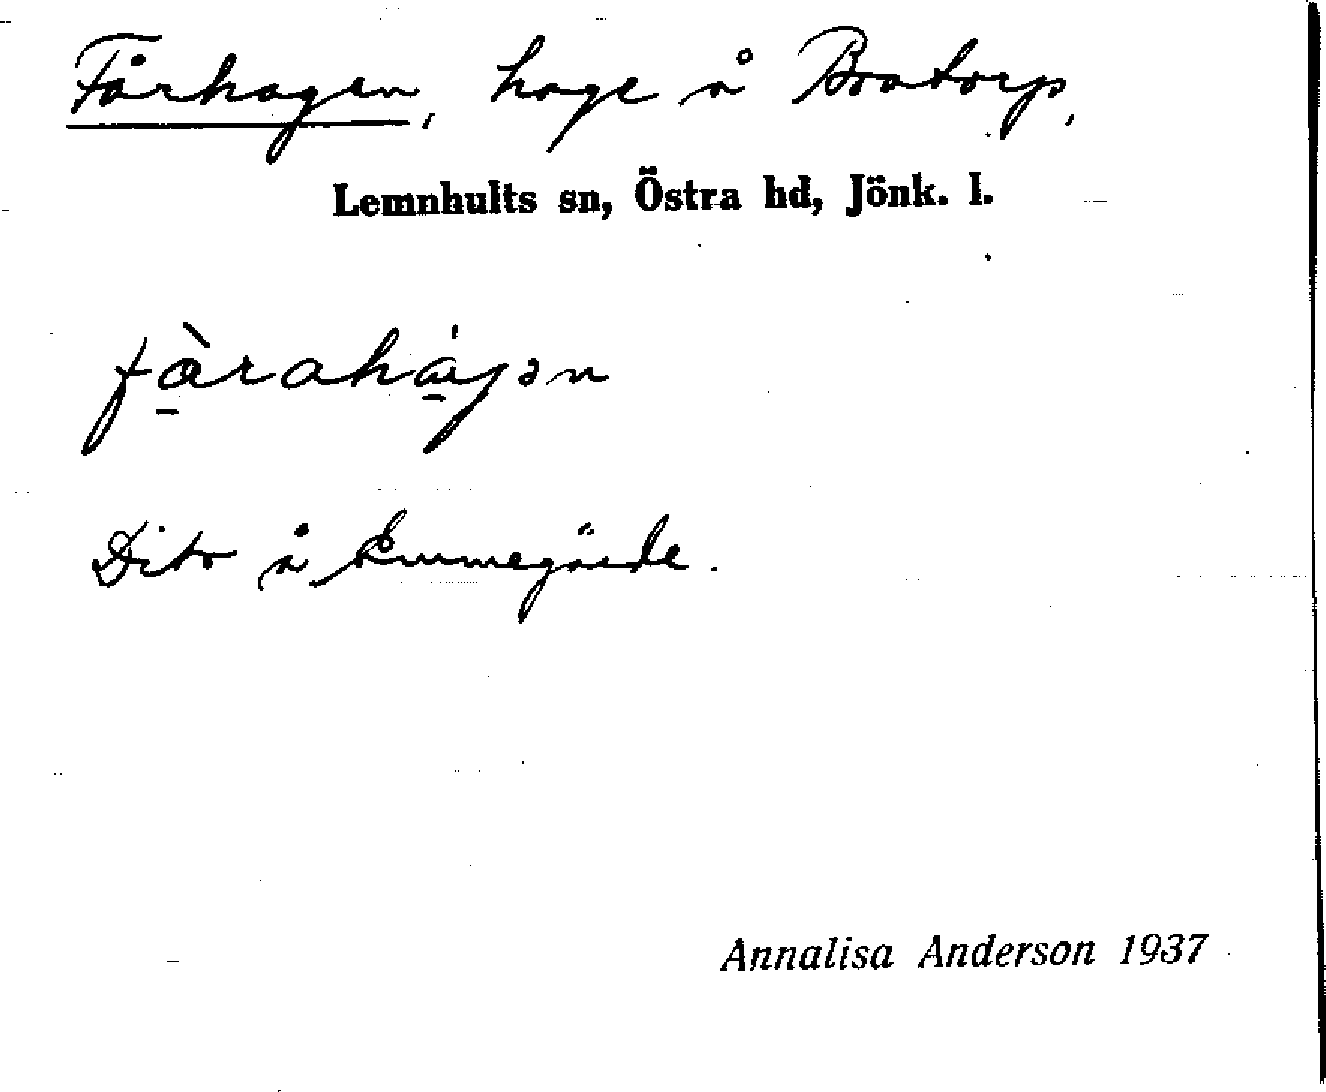 Fårhagen, hage å Bratorp,
Lemnhults sn, Östra hd, Jönk. l.
fàrahágən
Dito å Emmegärde.
Annalisa Anderson 1937